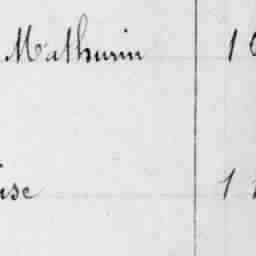 Mathurin 1
ise 1